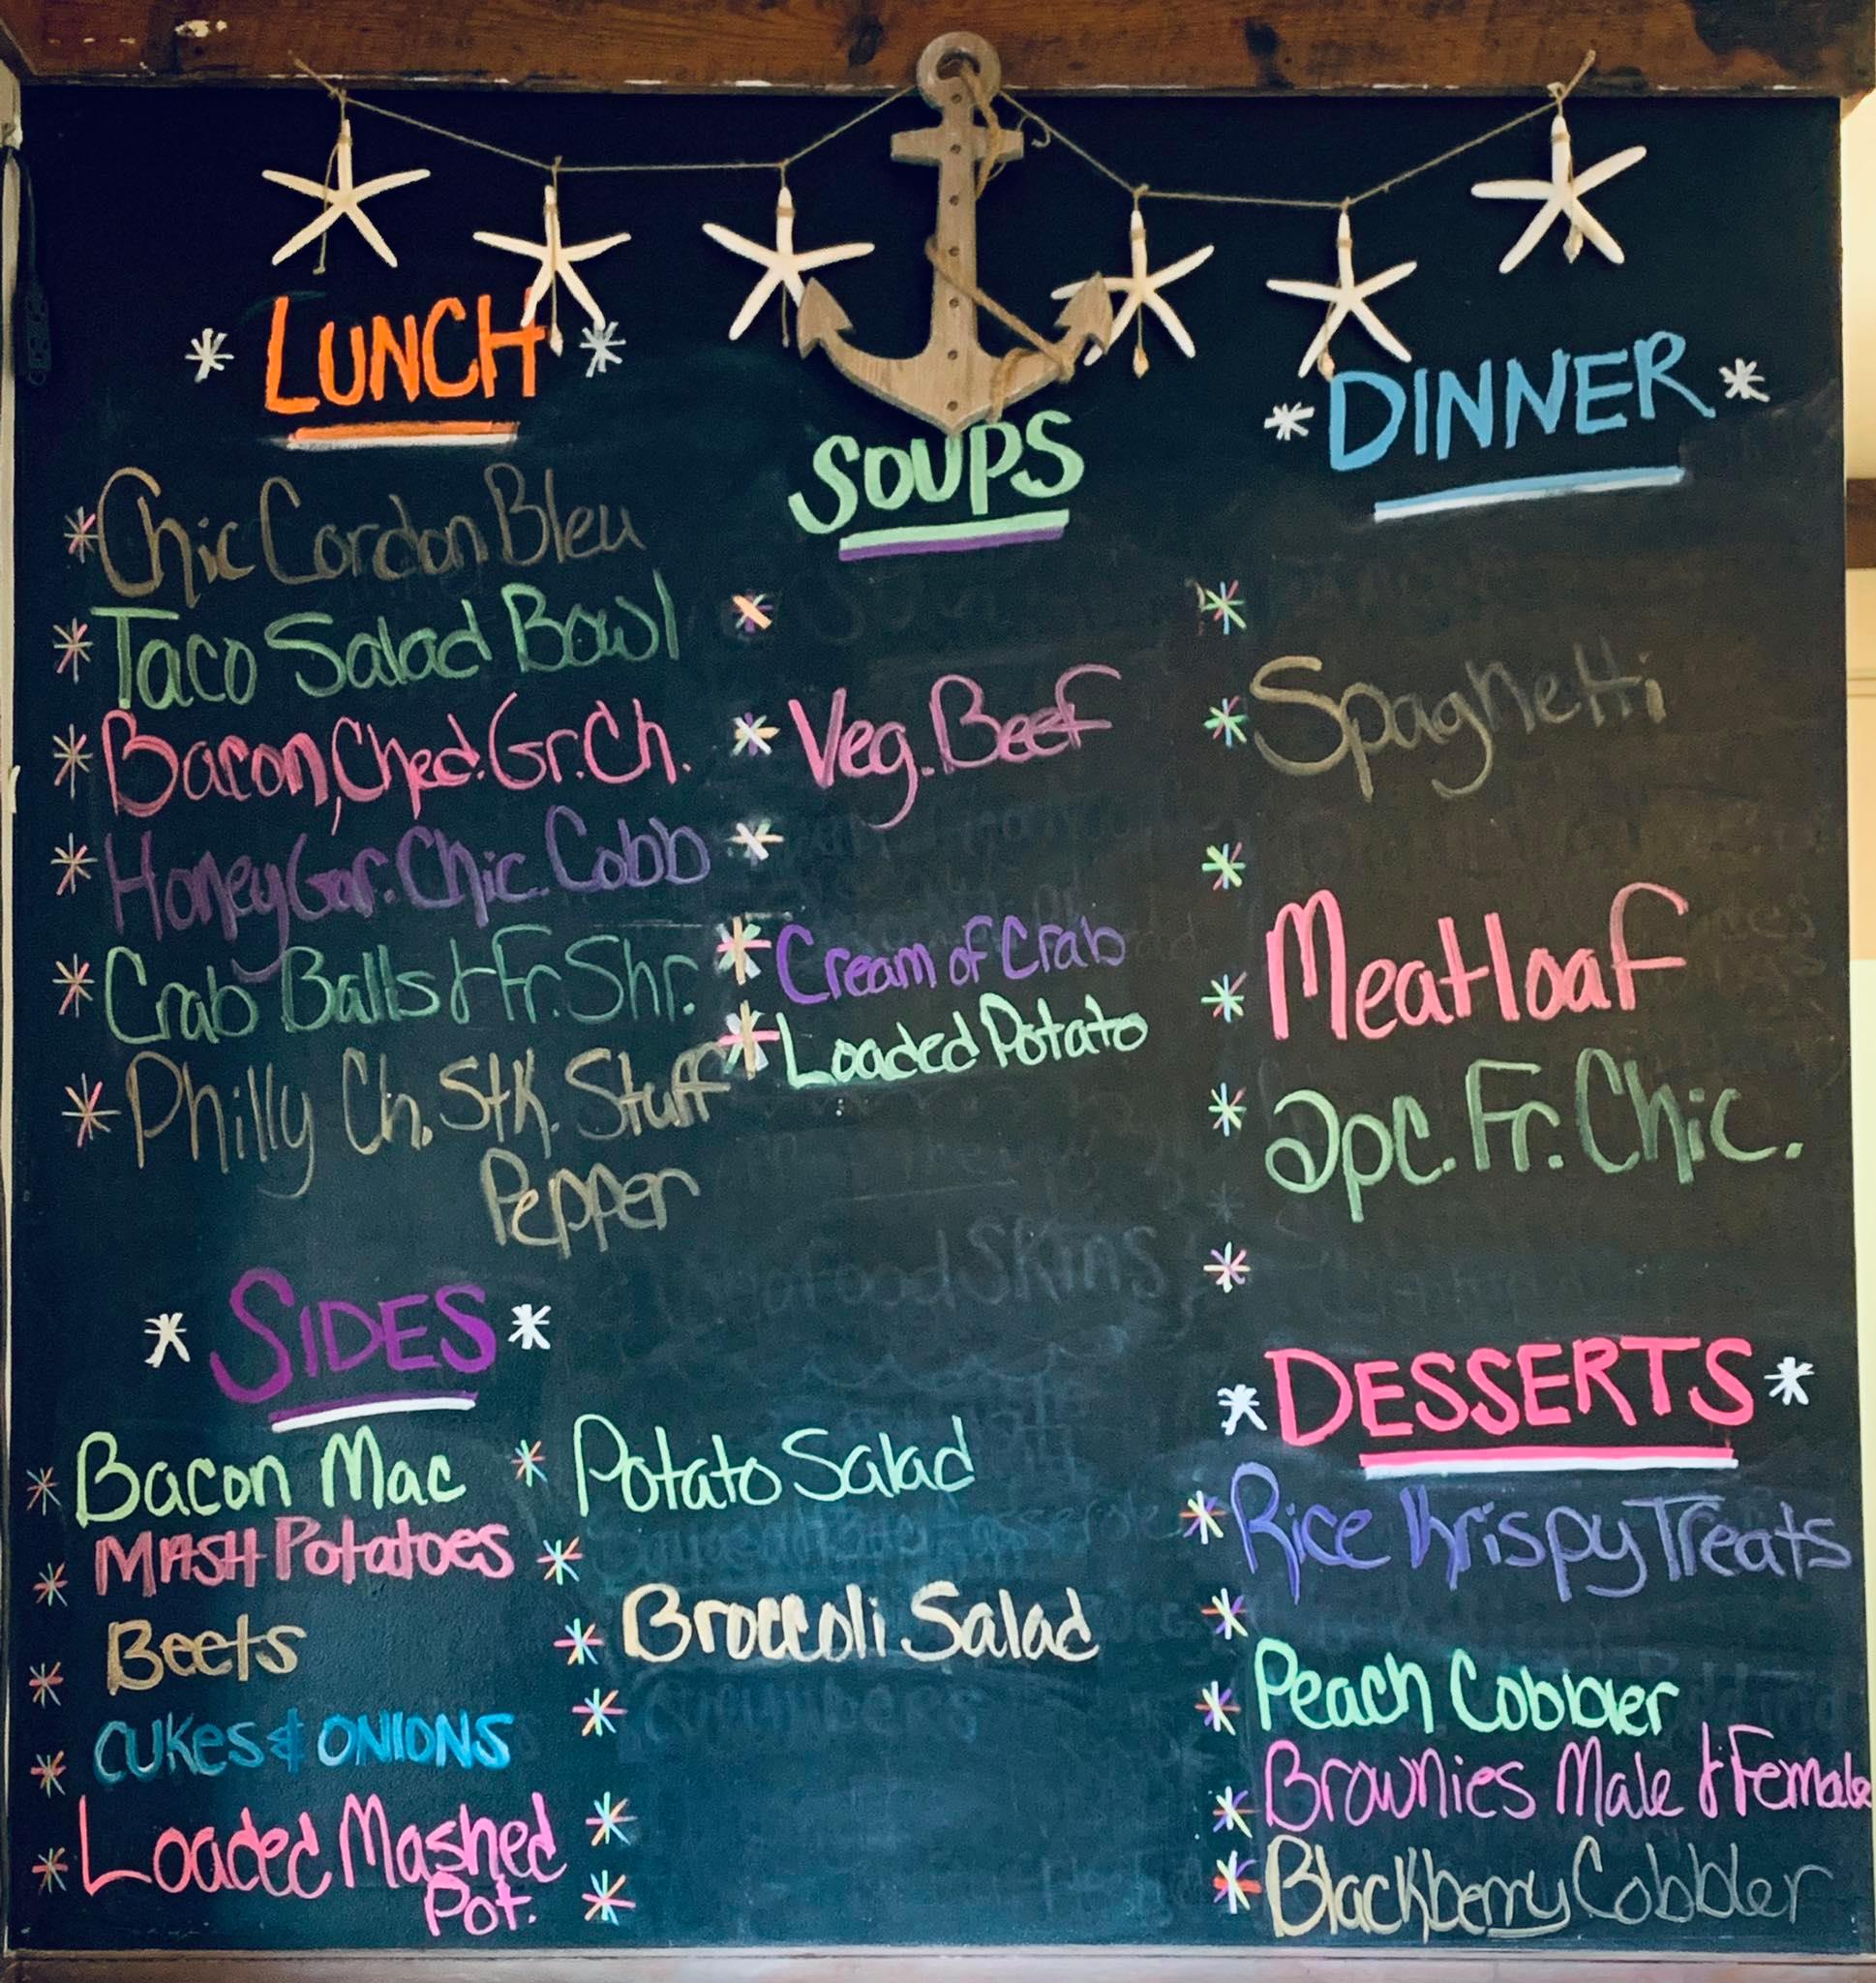 LUNCH
Chic Cordon Bleu
Taco Salad Bowl
Bacon, Ched. Gr. Ch.
Honey Gar. Chic. Cobb
Crab Balls & Fr. Shr.
Philly Ch. Stk. Stuff
Pepper
SOUPS
Veg. Beef
Cream of Crab
Loaded Potato
DINNER
Spaghetti
Meatloaf
2pc. Fr. Chic.
SIDES
Bacon Mac
MASH Potatoes
Beets
CUKES & ONIONS
Loaded Mashed
Pot.
Potato Salad
Broccoli Salad
DESSERTS
Rice Krispy Treats
Peach Cobbler
Brownies Male & Female
Blackberry Cobbler